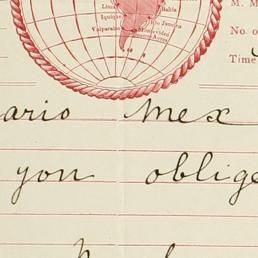 Lima
Bahia
Iquique
Rio Janeiro
Valparaiso
Montevideo
Buenos Ayres
M. M
No. o
Time
ario Mex
you oblige